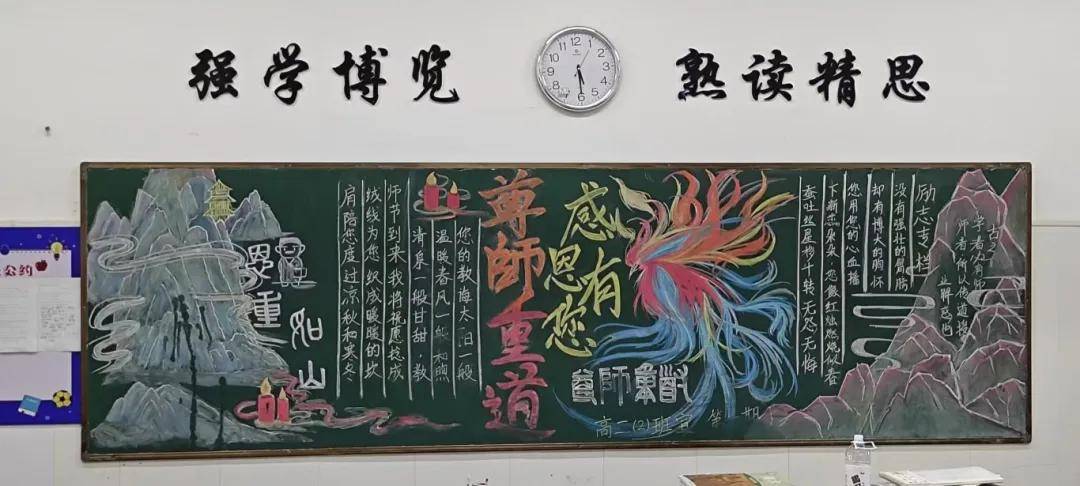 强学博览
熟读精思
公约
恩重
如
山
您的教诲太阳一般
温暖春风一般和煦
清泉一般甘甜，教
师节到来我将祝愿捻成
绒线为您织成暖暖的坎
肩陪您度过凉秋和寒冬
尊師重道
感恩有您
尊師重道
高二(2)班宣 第 期
励志专栏
没有强壮的臂膀
却有博大的胸怀
您用你的心血播
下 朵朵 您像红烛燃烧似春
蚕吐丝星移斗转无怨无悔
古之
学者必有师
师者所以传道授
业解惑也